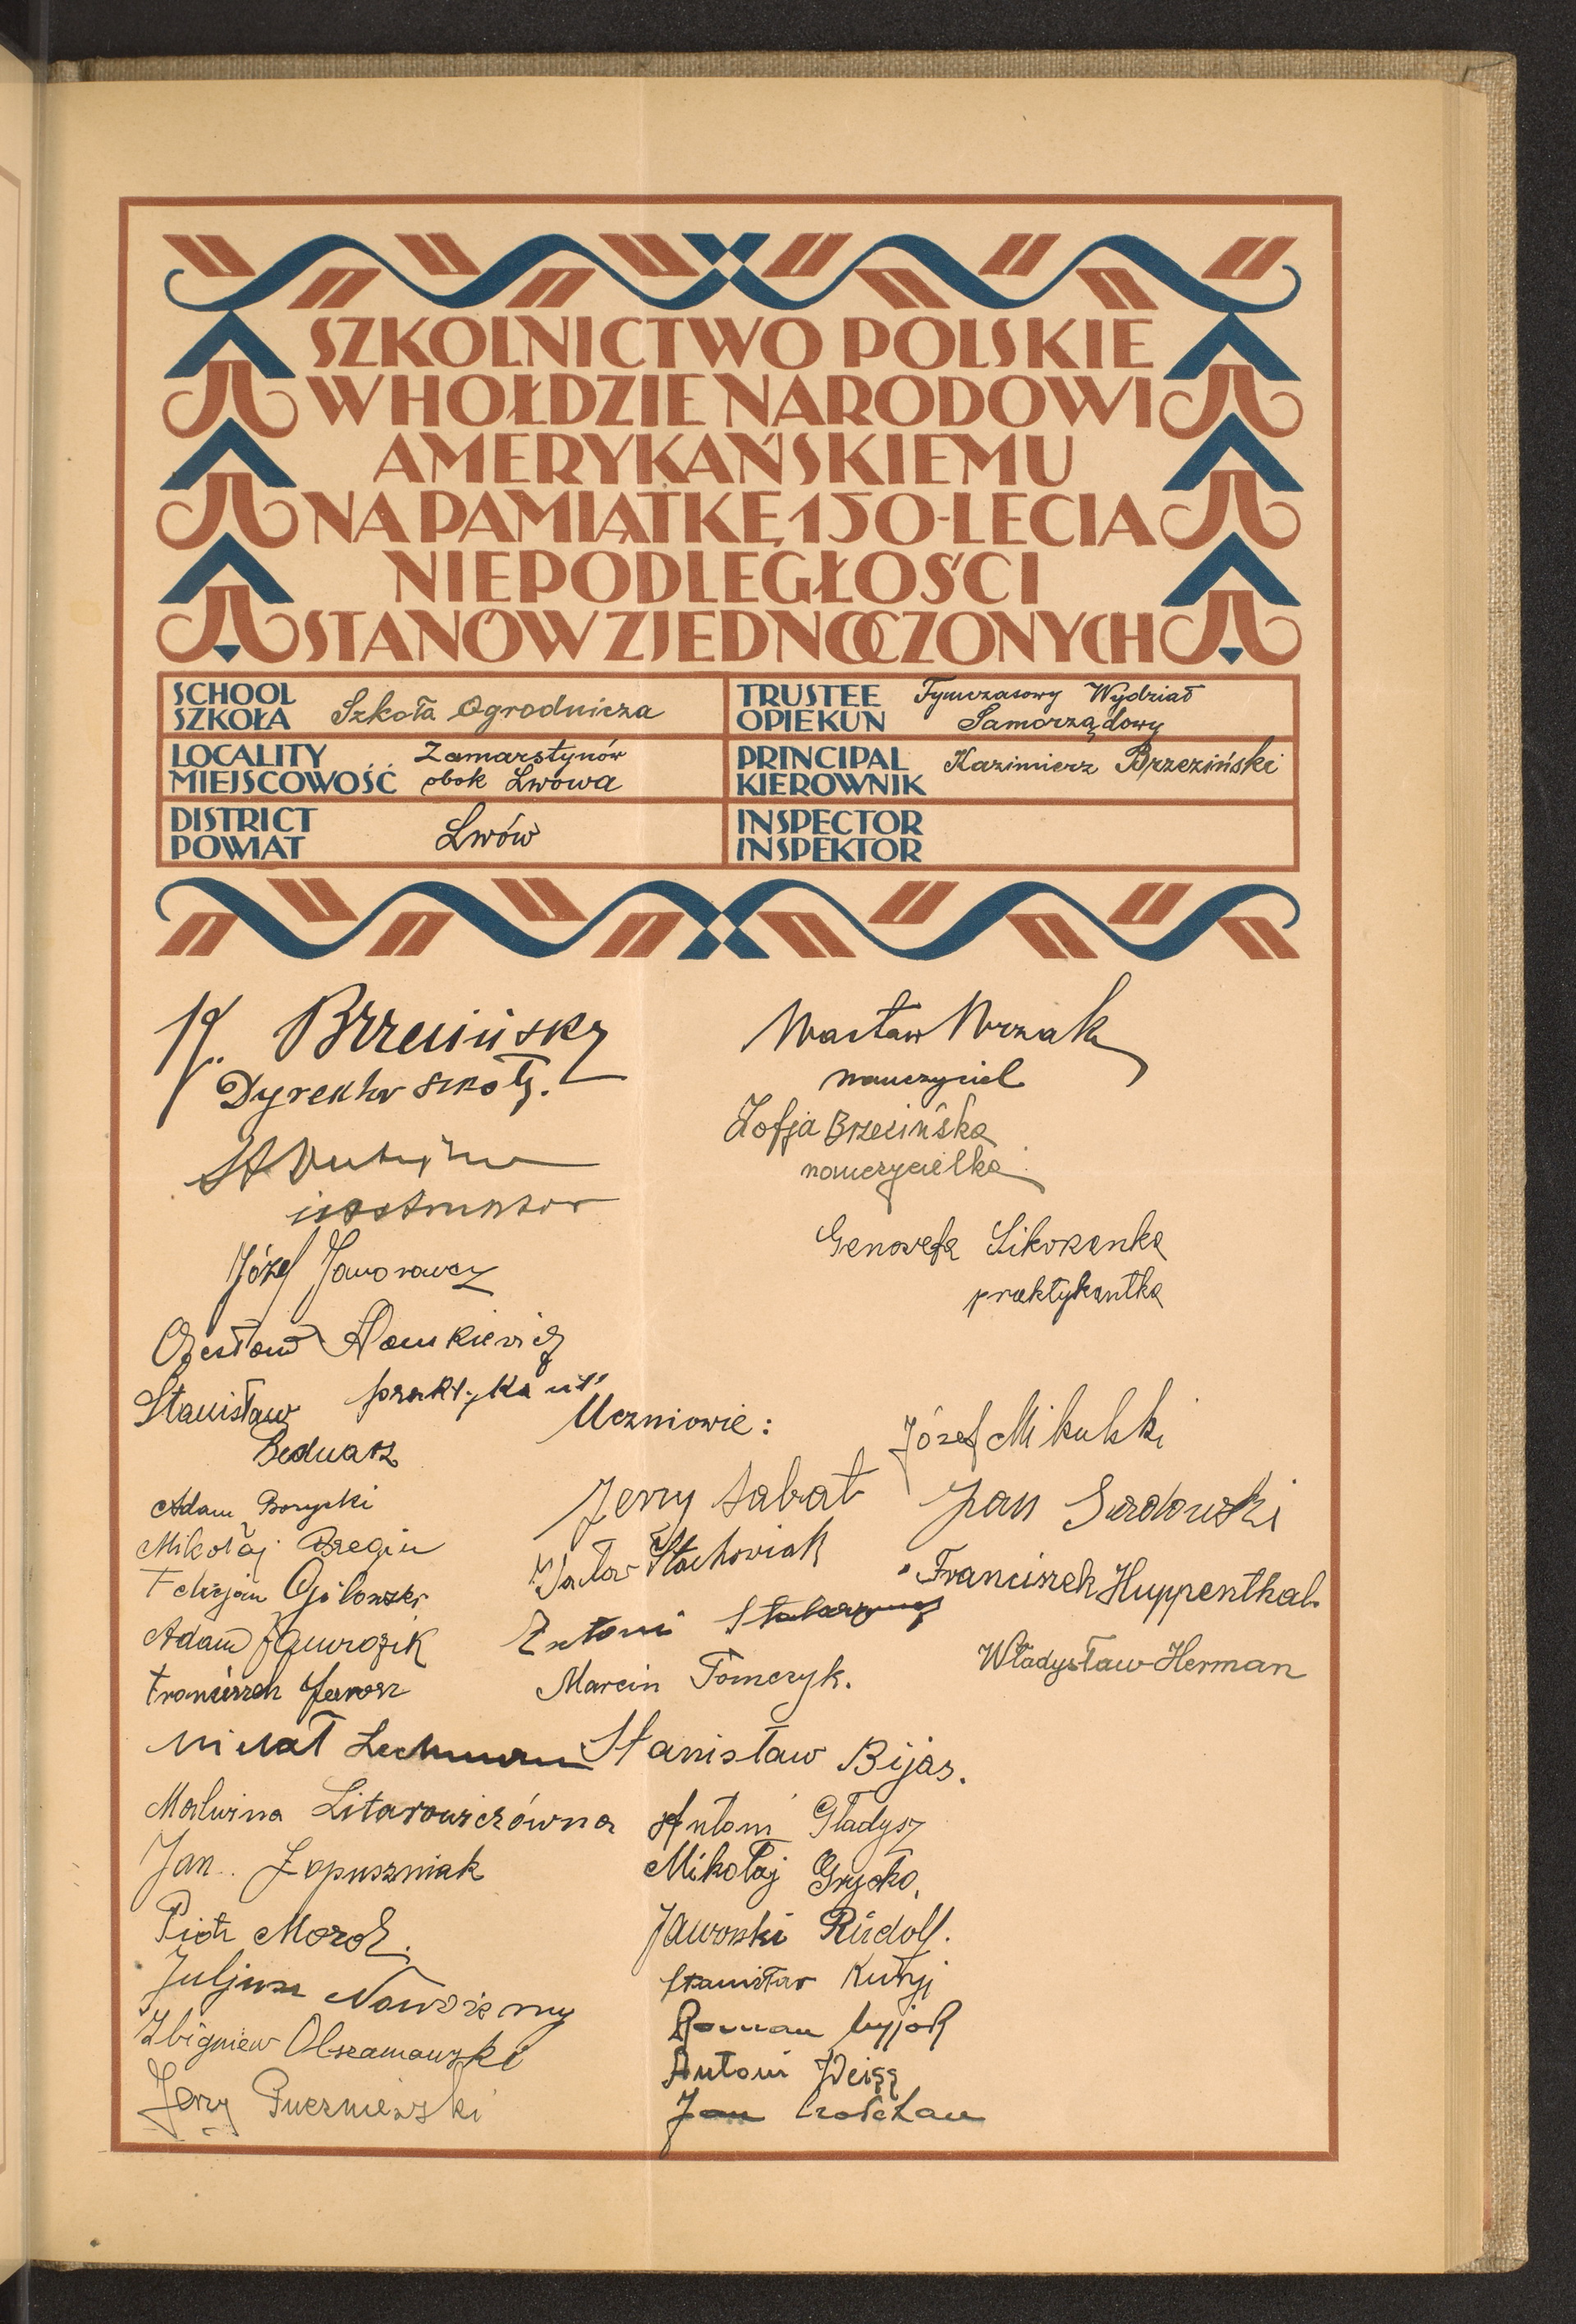 SZKOLNICTWO POLSKIE
W HOŁDZIE NARODOWI
AMERYKAŃSKIEMU
NA PAMIĄTKĘ 150-LECIA
NIEPODLEGŁOŚCI
STANÓW ZJEDNOCZONYCH
SCHOOL
SZKOŁA
Szkoła Ogrodnicza
TRUSTEE
OPIEKUN
Tymczasowy Wydział
Samorządowy
LOCALITY
MIEJSCOWOŚĆ
Zamarstynów
obok Lwowa
PRINCIPAL
KIEROWNIK
Kazimierz Brzeziński
DISTRICT
POWIAT
Lwów
INSPECTOR
INSPEKTOR
K. Brzeziński
Dyrektor szkoły.
instruktor
Józef
Czesław
praktykant
Wacław Wrzak
nauczyciel
Zofja Brzezińska
nauczycielka
Genowefa Sikoranka
praktykantka
Stanisław
Bednarz
Adam Borycki
Mikołaj
Felicjan
Adam
Franciszek Jarosz
Michał Lechman
Malwina Litarowiczówna
Jan Łopuszniak
Piotr Moroz.
Juljusz Nowosielny
Zbigniew Olszamowski
Jerzy Puczniewski
Uczniowie:
Jerzy Sabat
Wacław Stachowiak
Antoni
Marcin Tomczyk.
Stanisław Bijas.
Antoni Gładysz
Mikołaj Gryćko,
Jaworski Rudolf.
Stanisław
Roman
Antoni Weiss
Jan
Józef Mikulski
Jan Sadowski
Franciszek Huppenthal.
Władysław Herman